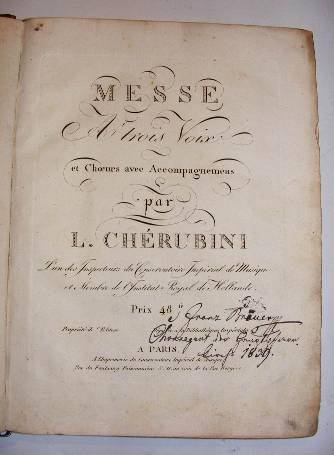 MESSE
A trois Voix
et Chœurs avec Accompagnemens
par
L. CHÉRUBINI
L'un des Inspecteurs du Conservatoire Impérial de Musique
et Membre de l'Institut Royal de Hollande.
Prix 48
Franz
Propriété de l'Editeur
Bibliothèque Impériale
A PARIS,
A l'Imprimerie du Conservatoire Impérial de Musique
Rue du Faubourg Poissonnière
1839.